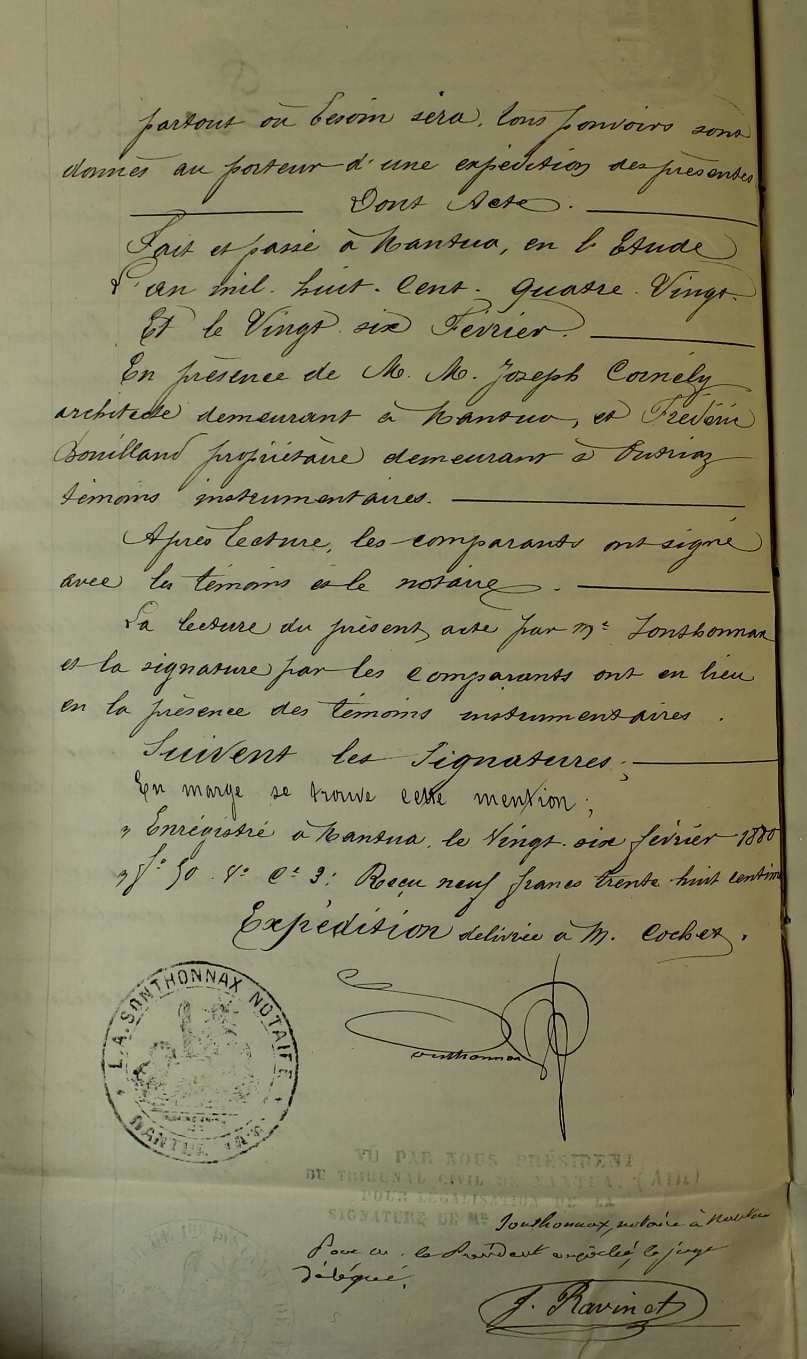 partout où besoin sera, tous pouvoirs sont
donnés au porteur d'une expédition des présentes
Dont Acte.
Fait et passé à Nantua, en l'Etude
L'an mil. huit. Cent. quatre. Vingt.
Et le Vingt six Février.
En présence de M. M. Joseph Cornély
architecte demeurant à Nantua, et Frédéric
Bouilland propriétaire demeurant à
témoins instrumentaires.
Après lecture, les comparants ont signé
avec les témoins et le notaire.
La lecture du présent acte par Me Sonthonnax
et la signature par les comparants ont eu lieu
en la présence des témoins instrumentaires.
Suivent les Signatures;
En marge se trouve cette mention;
" Enrégistré à Nantua, le Vingt. six février 1880
" fo 50 Vo Ce 3: Reçu neuf francs trente huit centim
Expédition délivrée à M. Cochet.
L.A. SONTHONNAX NOTAIRE
NANTUA
Sonthonnax
VU PAR NOUS PRÉSIDENT
DU TRIBUNAL CIVIL DE NANTUA. (AIN)
POUR LÉGALISATION DE LA
SIGNATURE DE Me Sonthonnax, notaire à Nantua
Pour le Président empêché, le juge
délégué.
J. Ravinet